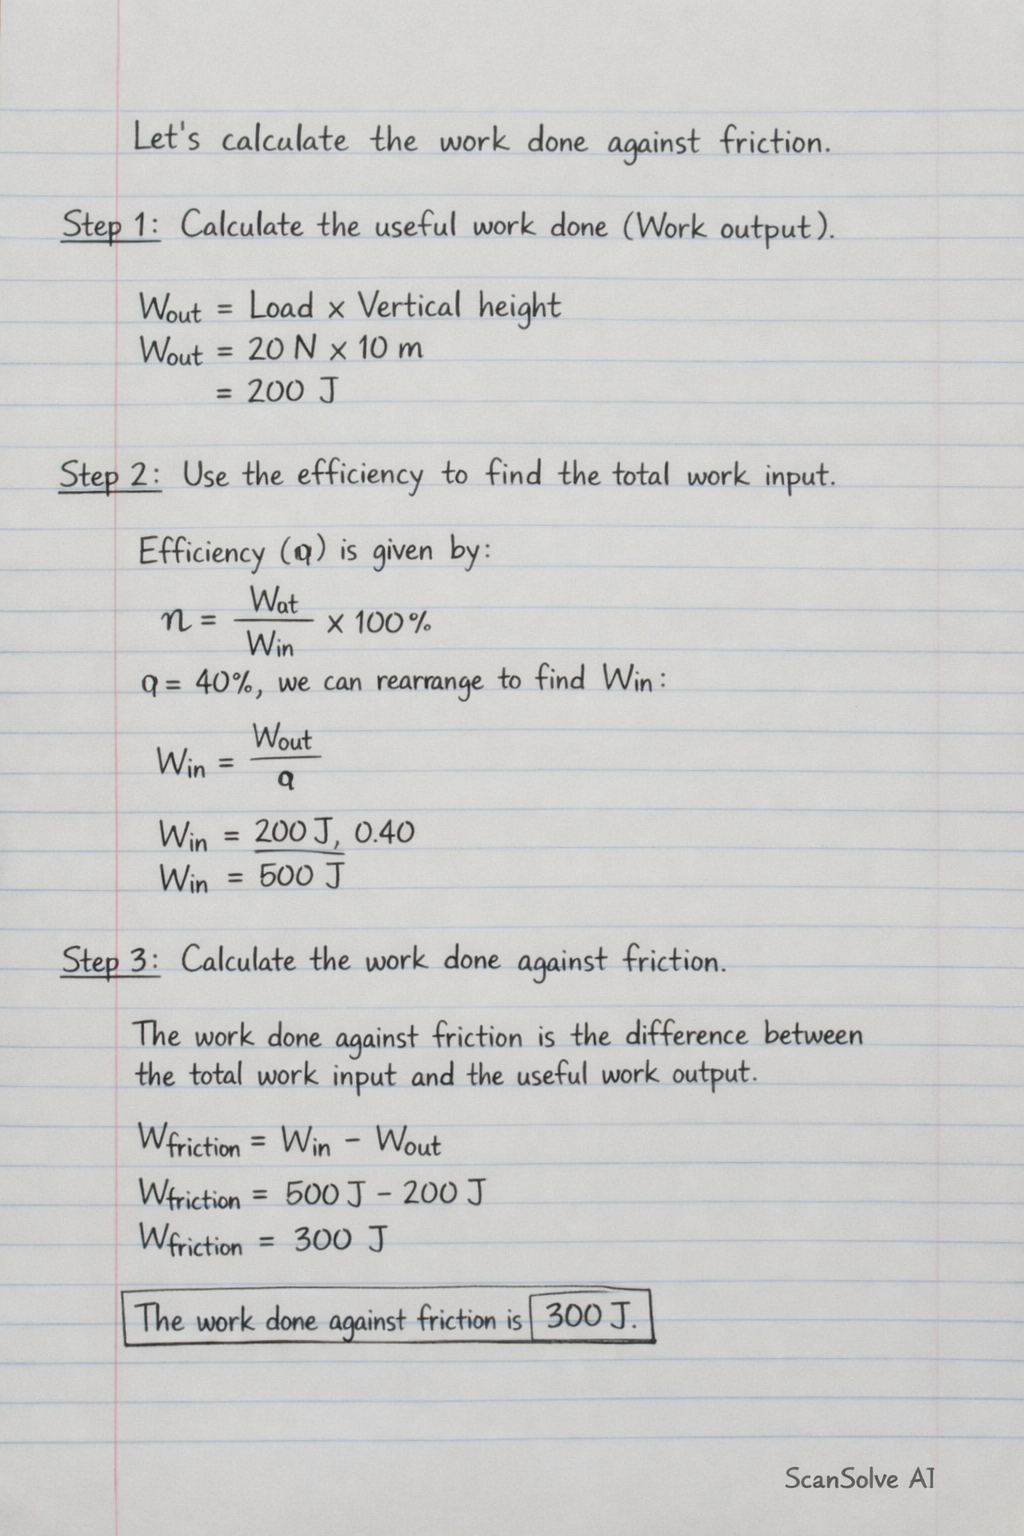 Let's calculate the work done against friction.
Step 1: Calculate the useful work done (Work output).
Wout = Load x Vertical height
Wout = 20 N x 10 m
= 200 J
Step 2: Use the efficiency to find the total work input.
Efficiency (q) is given by:
n = Wat / Win x 100%
q = 40%, we can rearrange to find Win:
Win = Wout / q
Win = 200 J, 0.40
Win = 500 J
Step 3: Calculate the work done against friction.
The work done against friction is the difference between
the total work input and the useful work output.
Wfriction = Win - Wout
Wfriction = 500 J - 200 J
Wfriction = 300 J
The work done against friction is 300 J.
ScanSolve AI